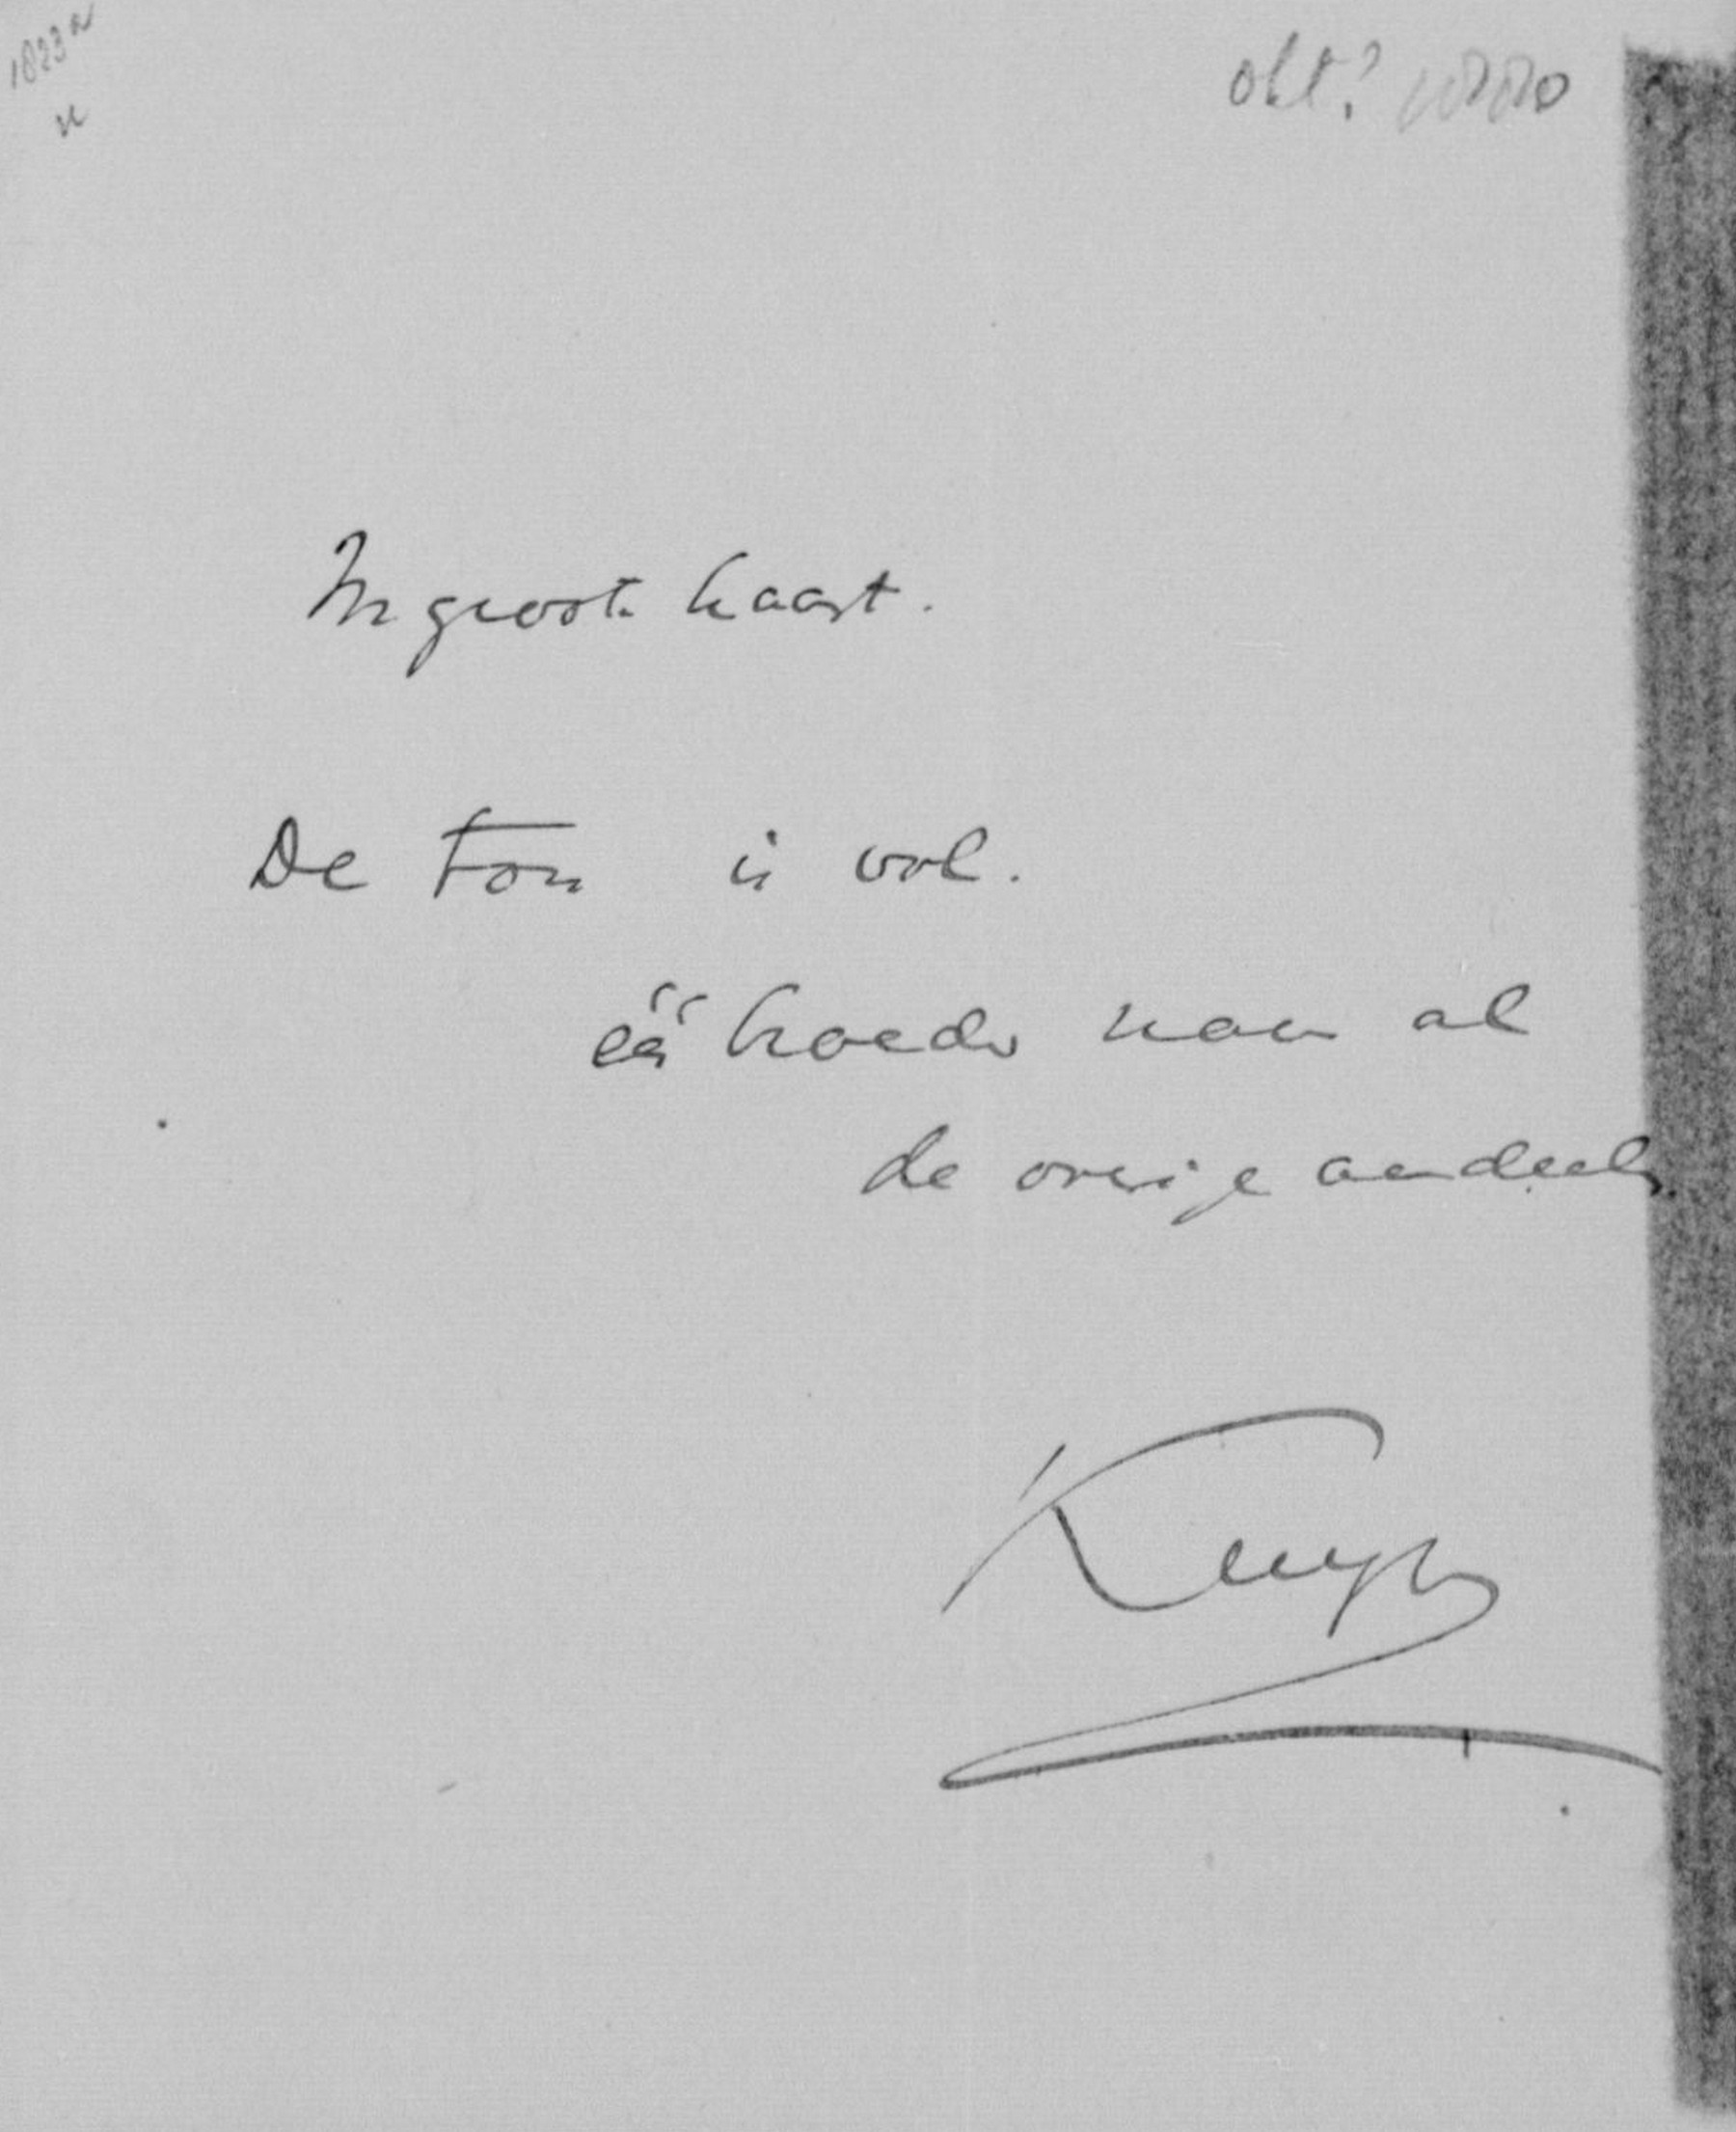 1823a
okt? 1880
In groote haast.
De Ton is vol.
één broeder nam al
de overige aandeelen.
Kuyper